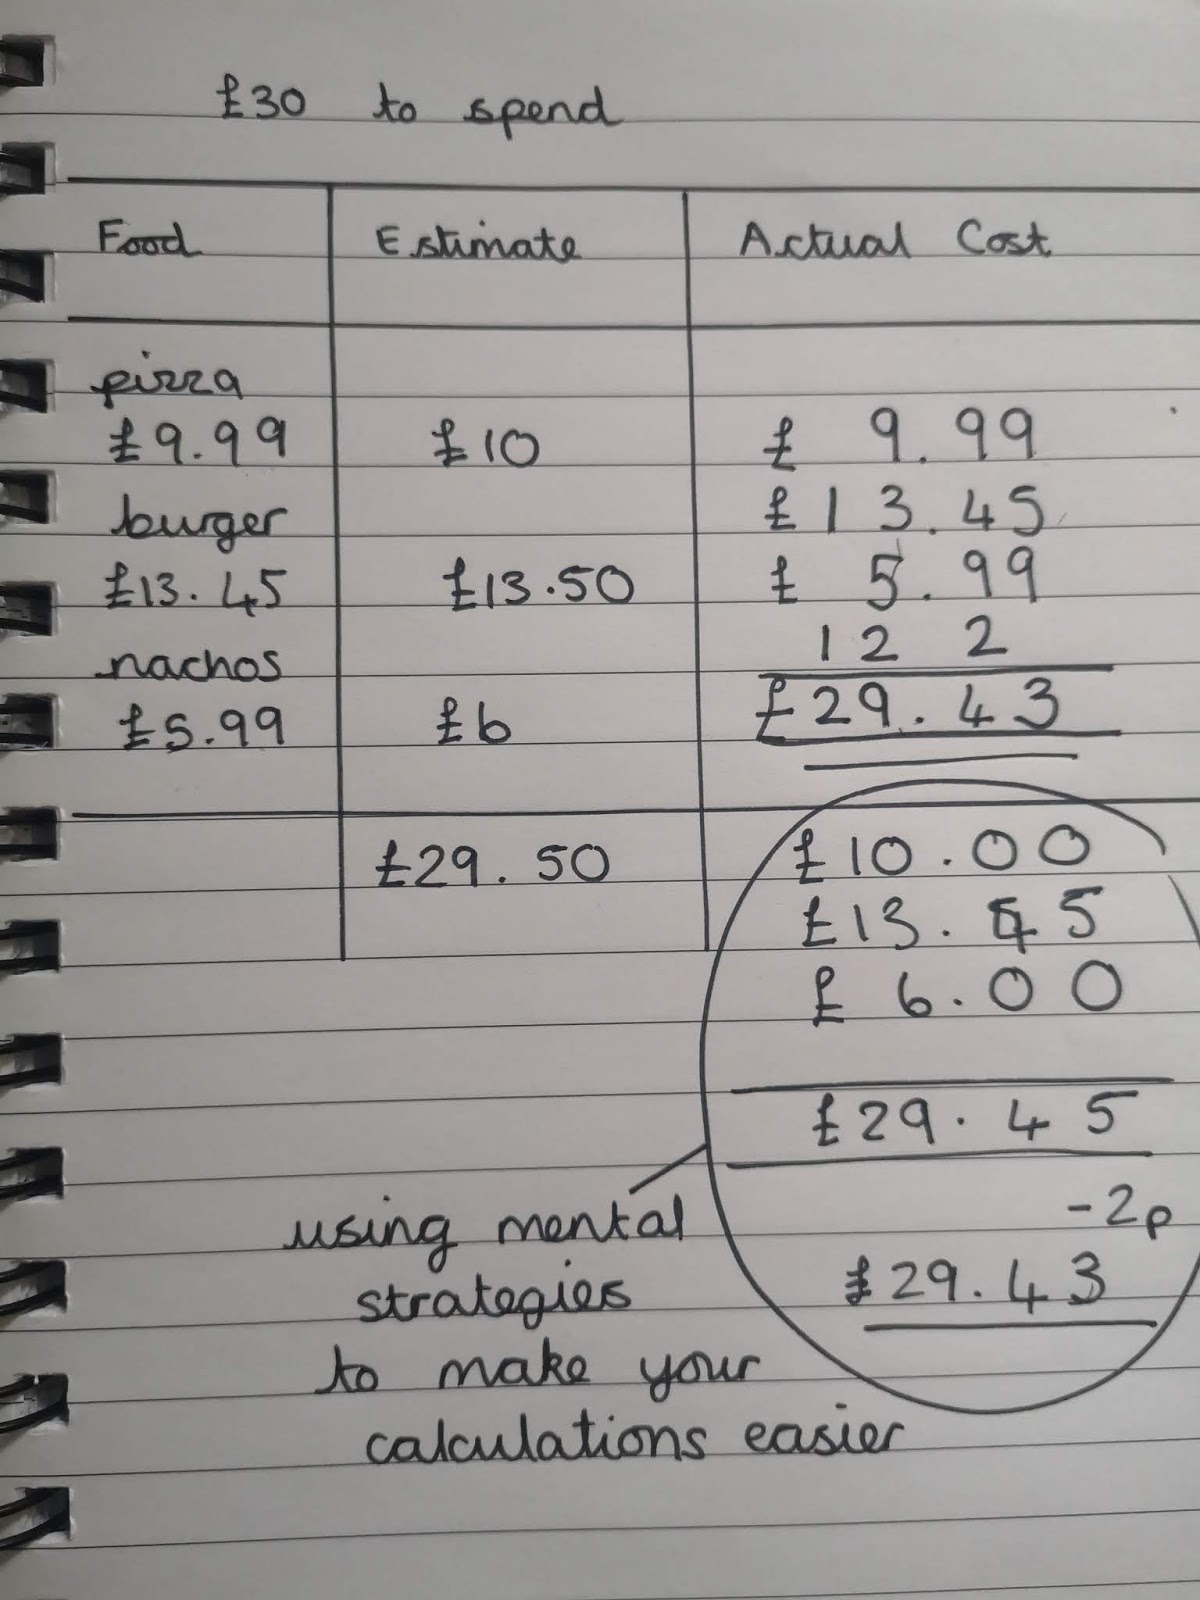 £30 to spend
Food Estimate Actual Cost
pizza
£9.99 £10 £ 9.99
burger £13.45
£13.45 £13.50 £ 5.99
nachos 12 2
£5.99 £6 £29.43
£29.50 £10.00
£13.45
£ 6.00
£29.45
-2p
£29.43
using mental
strategies
to make your
calculations easier